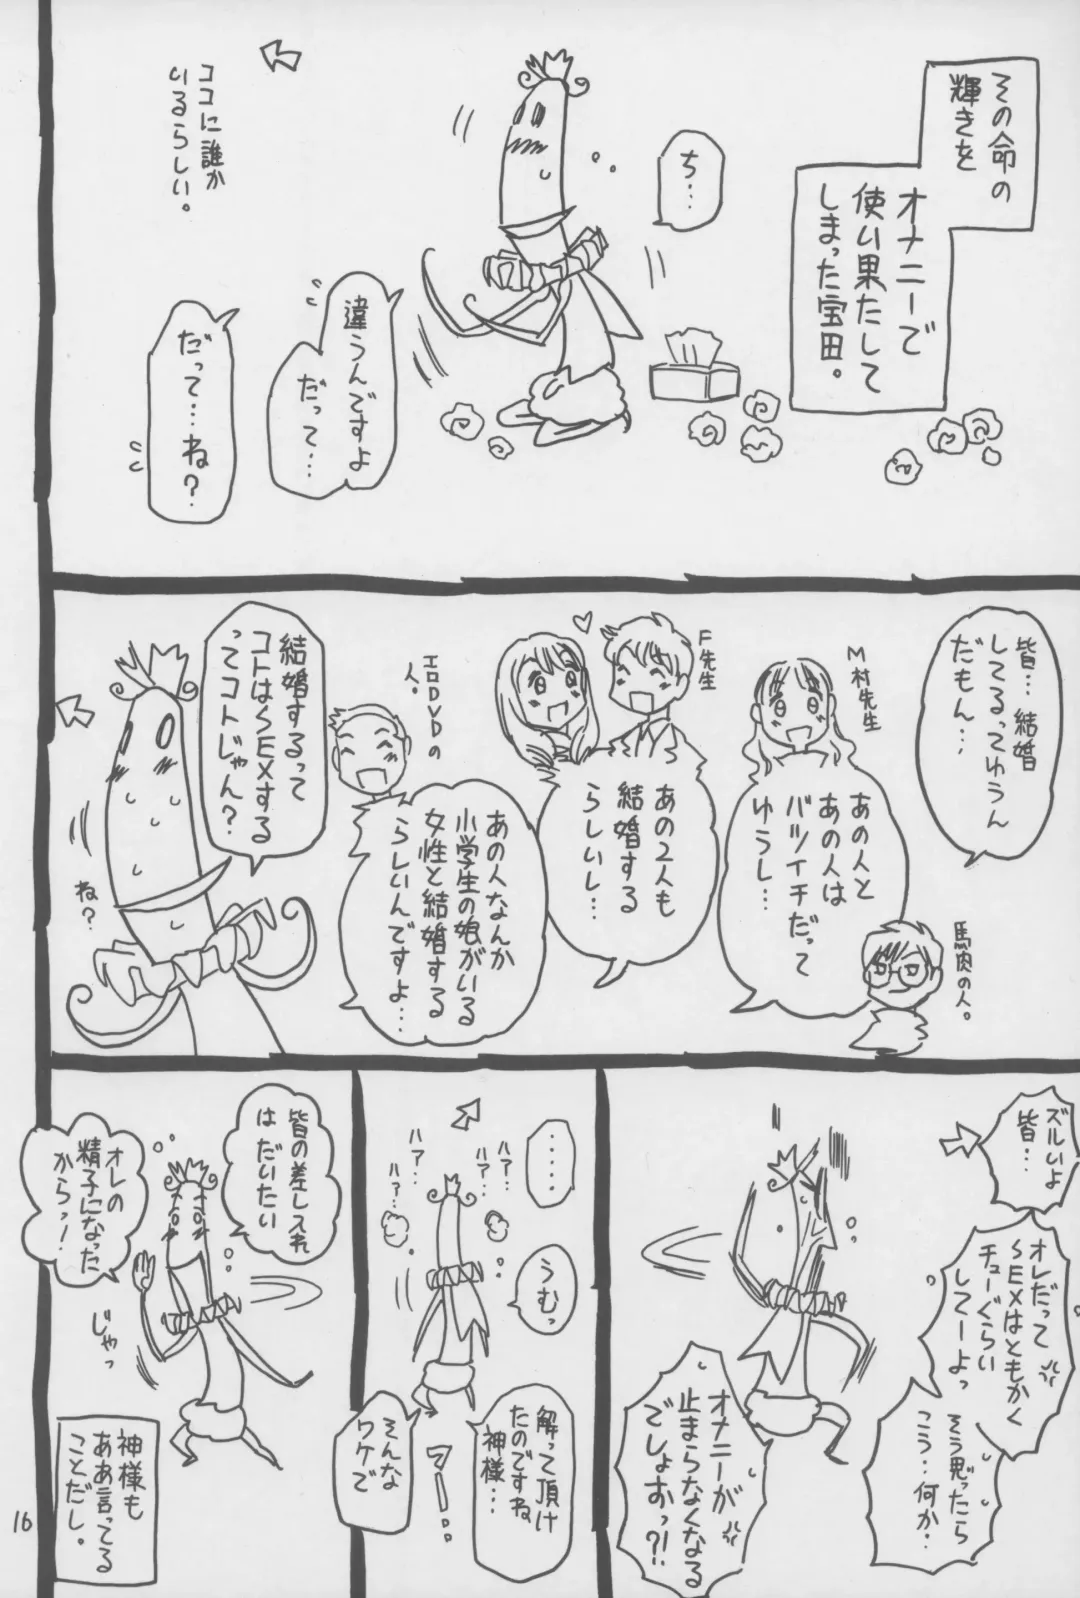 その命の
輝きを
オナニーで
使い果たして
しまった宝田。
ち…
違うんですよ
だって…
だって…ね?
ココに誰か
いるらしい。
皆…結婚
してるってゆうん
だもん…
馬肉の人。
M村先生
あの人と
あの人は
バツイチだって
ゆうし…
F先生
あの2人も
結婚する
らしいし…
エロDVDの
人。
あの人なんか
小学生の娘がいる
女性と結婚する
らしいんですよ…
結婚するって
コトはSEXする
ってコトじゃん?
ね?
ズルいよ
皆…
オレだって
SEXはともかく
チューぐらい
してーよっ
そう思ったら
こう…何か…
オナニーが
止まらなくなる
でしょおっ?!!
……
うむっ
ハァ…
ハァ…
ハァ…
ハァ…
解って頂け
たのですね
神様…
そんな
ワケで
皆の差し入れ
はだいたい
オレの
精子になった
からっ!
じゃっ
神様も
ああ言ってる
ことだし。
16